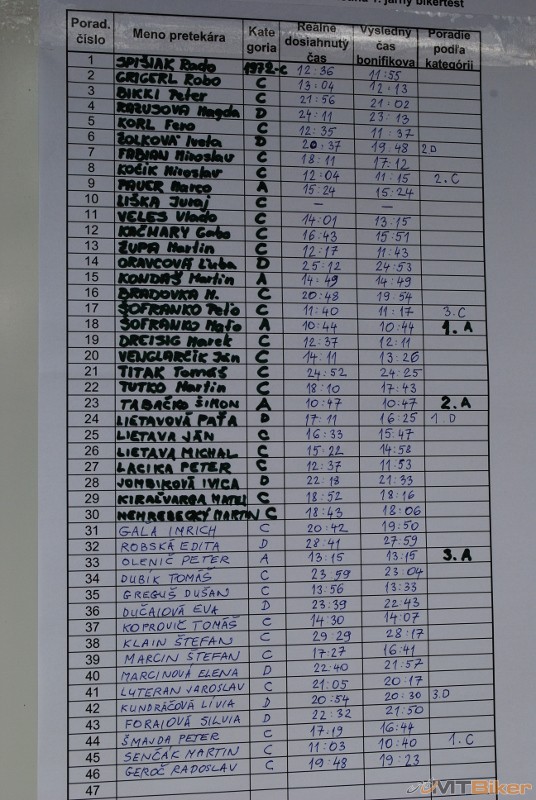 jarný bikertest
Porad. číslo Meno pretekára Kategoria Reálne dosiahnutý čas Výsledný čas bonifikova Poradie podľa kategórií
1 SPIŠIAK Rado 1972-C 12:36 11:55
2 GRIGERL Robo C 13:04 12:13
3 BIKKI Peter C 21:56 21:02
4 RAZUSOVA Magda D 24:11 23:13
5 KORL Fero C 12:35 11:37
6 ŽOLKOVÁ Iveta D 20:37 19:48 2D
7 FABIAN Miroslav C 18:11 17:12
8 KOČÍK Miroslav C 12:04 11:15 2.C
9 PAUER Marco A 15:24 15:24
10 LIŠKA Juraj C – –
11 VELES Vlado C 14:01 13:15
12 KACHARY Gabo C 16:43 15:51
13 ŽUPA Martin C 12:17 11:43
14 ORAVCOVÁ Ľuba D 25:12 24:53
15 KONDÁŠ Martin A 14:49 14:49
16 BRADOVKA M. C 20:48 19:54
17 ŠOFRANKO Peťo C 11:40 11:17 3.C
18 ŠOFRANKO Maťo A 10:44 10:44 1.A
19 DRCISIG Marek C 12:37 12:11
20 VENGLARČÍK Ján C 14:11 13:26
21 TITAK Tomáš C 24:52 24:25
22 TUTKO Martin C 18:10 17:43
23 TABAČKO ŠIMON A 10:47 10:47 2.A
24 LIETAVOVÁ PAŤA D 17:11 16:25 1.D
25 LIETAVA JÁN C 16:33 15:47
26 LIETAVA MICHAL C 15:22 14:58
27 LACIKA PETER C 12:37 11:53
28 JOMBIKOVÁ IVICA D 22:18 21:33
29 KIRAĽVARGA MATEJ C 18:52 18:16
30 HEMREBECKÝ MARTIN C 18:43 18:06
31 GALA IMRICH C 20:42 19:50
32 ROBSKÁ EDITA D 28:41 27:59
33 OLENIČ PETER A 13:15 13:15 3.A
34 DUBÍK TOMÁŠ C 23 59 23:04
35 GREGUŠ DUŠAN C 13:56 13:33
36 DUČAIOVÁ EVA D 23:39 22:43
37 KOPROVIČ TOMÁŠ C 14:30 14:07
38 KLAIN ŠTEFAN C 29:29 28:17
39 MARCIN ŠTEFAN C 17:27 16:41
40 MARCINOVÁ ELENA D 22:40 21:57
41 LUTERAN JAROSLAV C 21:05 20:17
42 KUNDRÁČOVÁ LÍVIA D 20:54 20:30 3.D
43 FORAIOVÁ SILVIA D 22:32 21:50
44 ŠMAJDA PETER C 17:19 16:44
45 SENČÁK MARTIN C 11:03 10:40 1.C
46 GEROČ RADOSLAV C 19:48 19:23
47
MTBiker